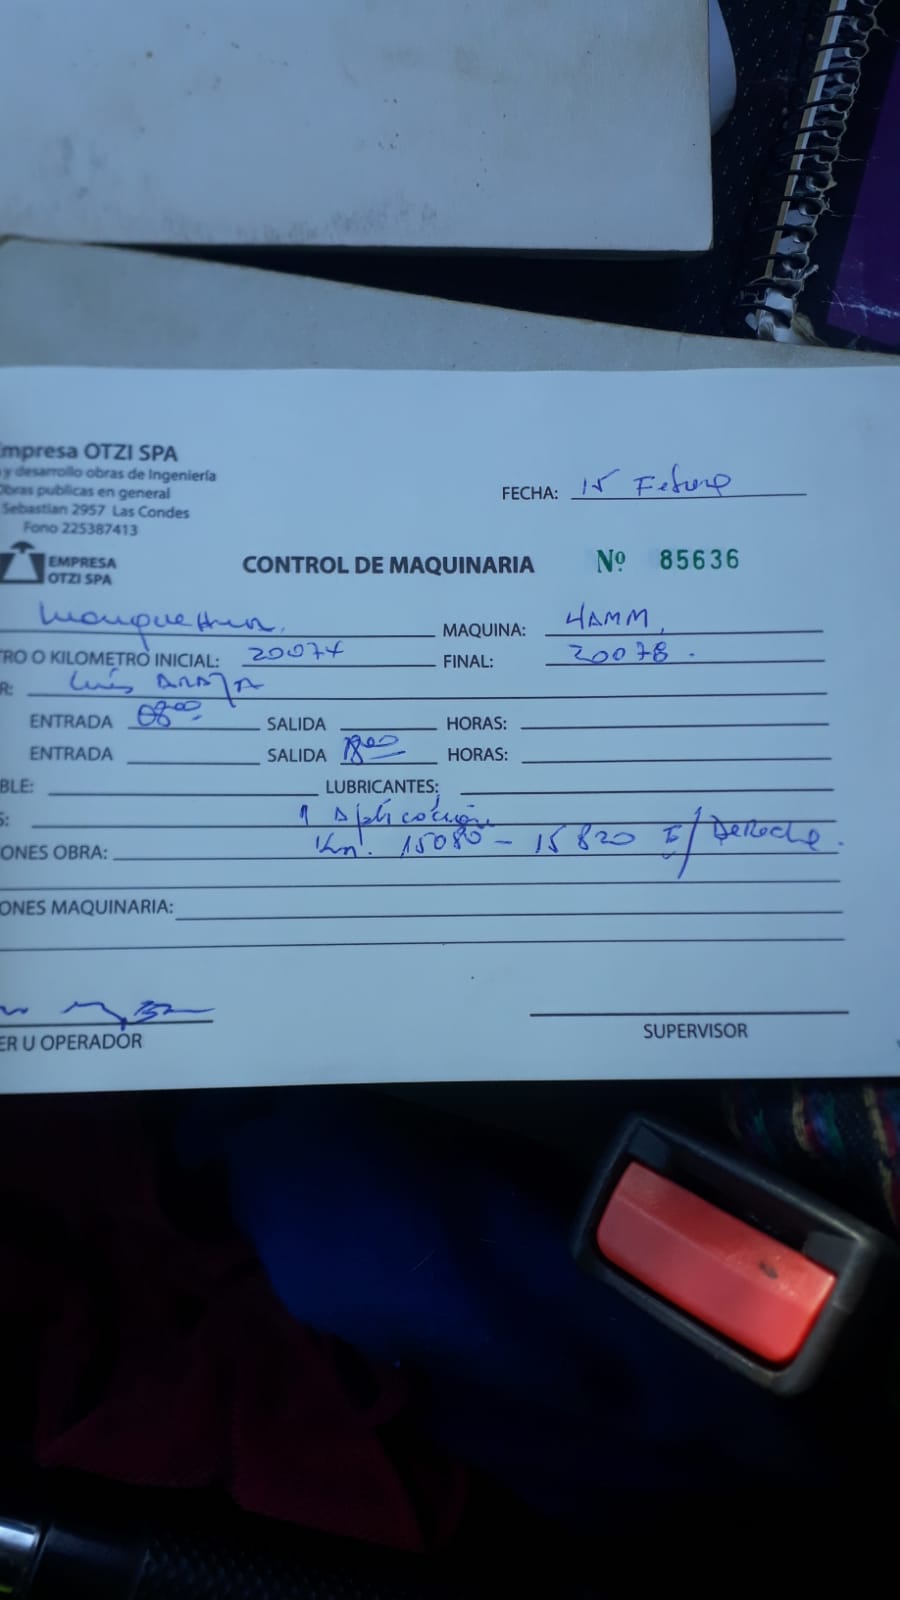 Empresa OTZI SPA
y desarrollo obras de Ingeniería
Obras publicas en general
Sebastian 2957 Las Condes
Fono 225387413
FECHA: 15 Febrero
EMPRESA
OTZI SPA
CONTROL DE MAQUINARIA Nº 85636
MAQUINA: HAMM.
TRO O KILOMETRO INICIAL: 20074 FINAL: 20078.
R: Luis ARAYA
ENTRADA 08:00 SALIDA HORAS:
ENTRADA SALIDA 18:00 HORAS:
BLE: LUBRICANTES:
S: 1 Aplicación
ONES OBRA: Km. 15080 - 15820 I/Derecha.
ONES MAQUINARIA:
ER U OPERADOR
SUPERVISOR